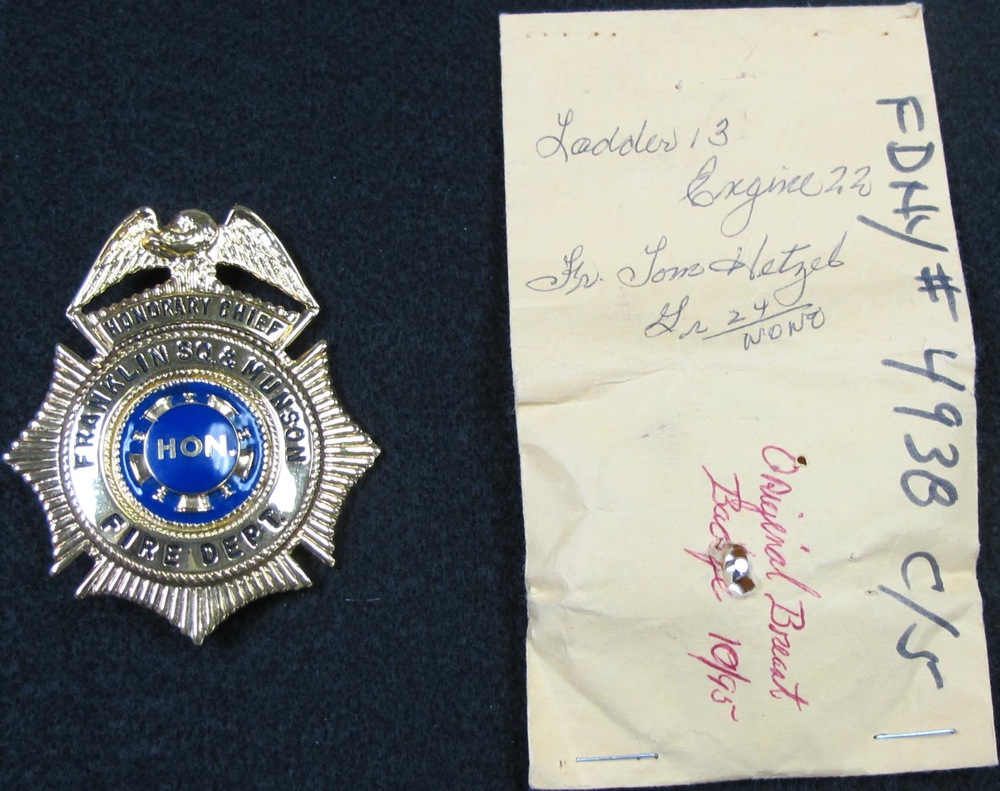 HONORARY CHIEF
FRANKLIN SQ. & MUNSON
HON.
FIRE DEPT.
Ladder 13
Engine 22
Fr. Tom Hetzel
24
NONO
FDNY # 4938 C/S
Original
Badge 10/95